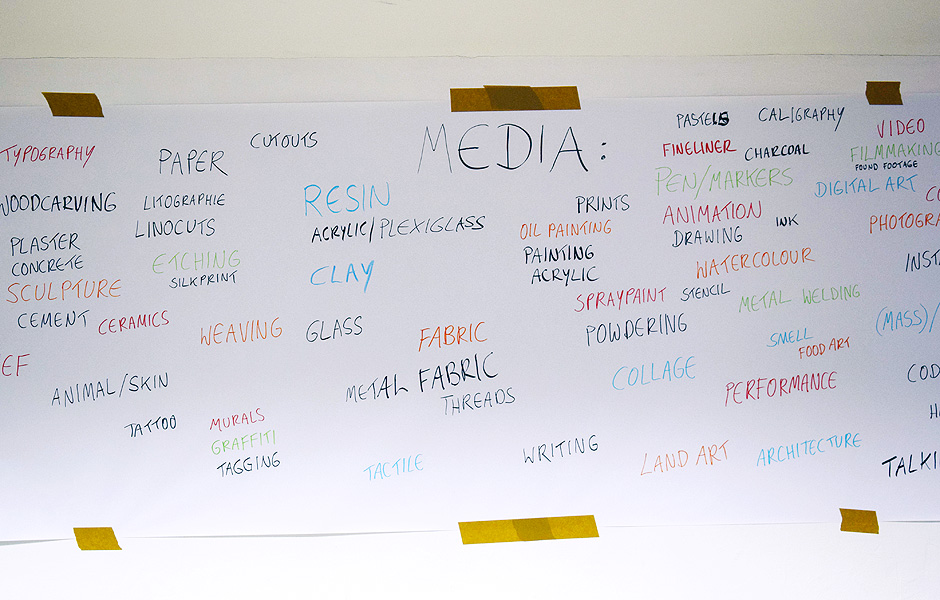 MEDIA:
TYPOGRAPHY
PAPER
CUTOUTS
WOODCARVING
LITOGRAPHIE
LINOCUTS
PLASTER
CONCRETE
SCULPTURE
ETCHING
SILKPRINT
CEMENT
CERAMICS
WEAVING
GLASS
EF
ANIMAL/SKIN
TATTOO
MURALS
GRAFFITI
TAGGING
RESIN
ACRYLIC/PLEXIGLASS
CLAY
FABRIC
METAL FABRIC
THREADS
TACTILE
PRINTS
OIL PAINTING
PAINTING
ACRYLIC
SPRAYPAINT
STENCIL
POWDERING
COLLAGE
WRITING
PASTELS
CALIGRAPHY
FINELINER
CHARCOAL
PEN/MARKERS
ANIMATION
INK
DRAWING
WATERCOLOUR
METAL WELDING
SMELL
FOOD ART
PERFORMANCE
LAND ART
ARCHITECTURE
VIDEO
FILMMAKING
FOUND FOOTAGE
DIGITAL ART
CO
PHOTOGRA
INSTA
(MASS)/
COD
TALKI